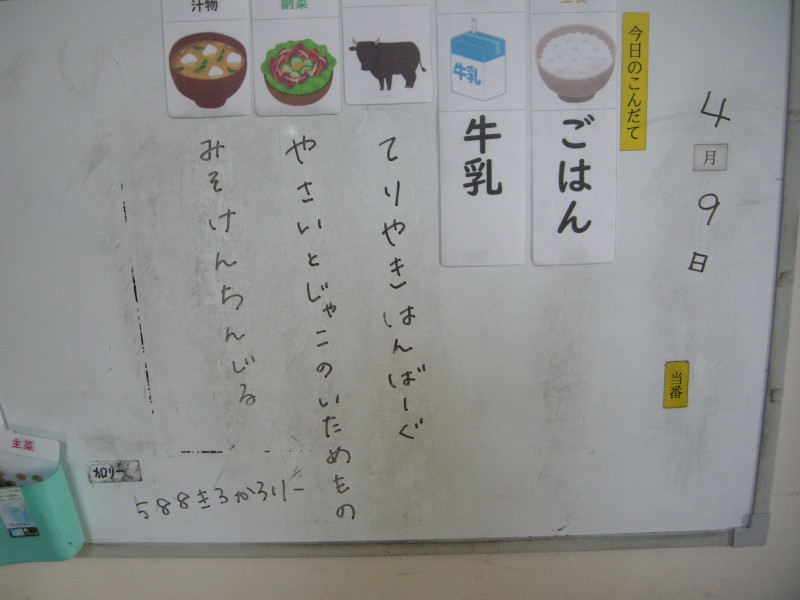 4月9日
当番
今日のこんだて
ごはん
牛乳
牛乳
てりやきはんばーぐ
副菜
やさいとじゃこのいためもの
汁物
みそけんちんじる
カロリー
588きろかろりー
主菜